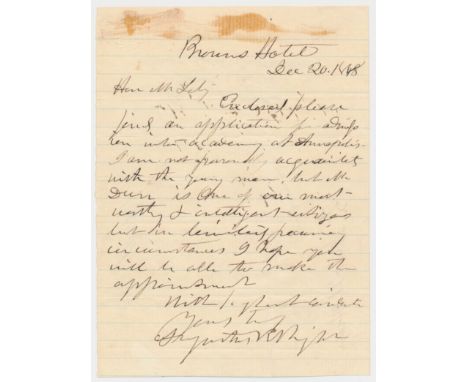 Browns Hotel
Dec 20. 1848
Hon Mr
Enclosed please
find an application for admiss
ion into academy at Annapolis.
I am not personally acquainted
with the young man, but Mr
Dunn is one of our most
worthy & intelligent citizens
but in limited pecuniary
circumstances I hope you
will be able to make the
appointment
With highest
Yours truly